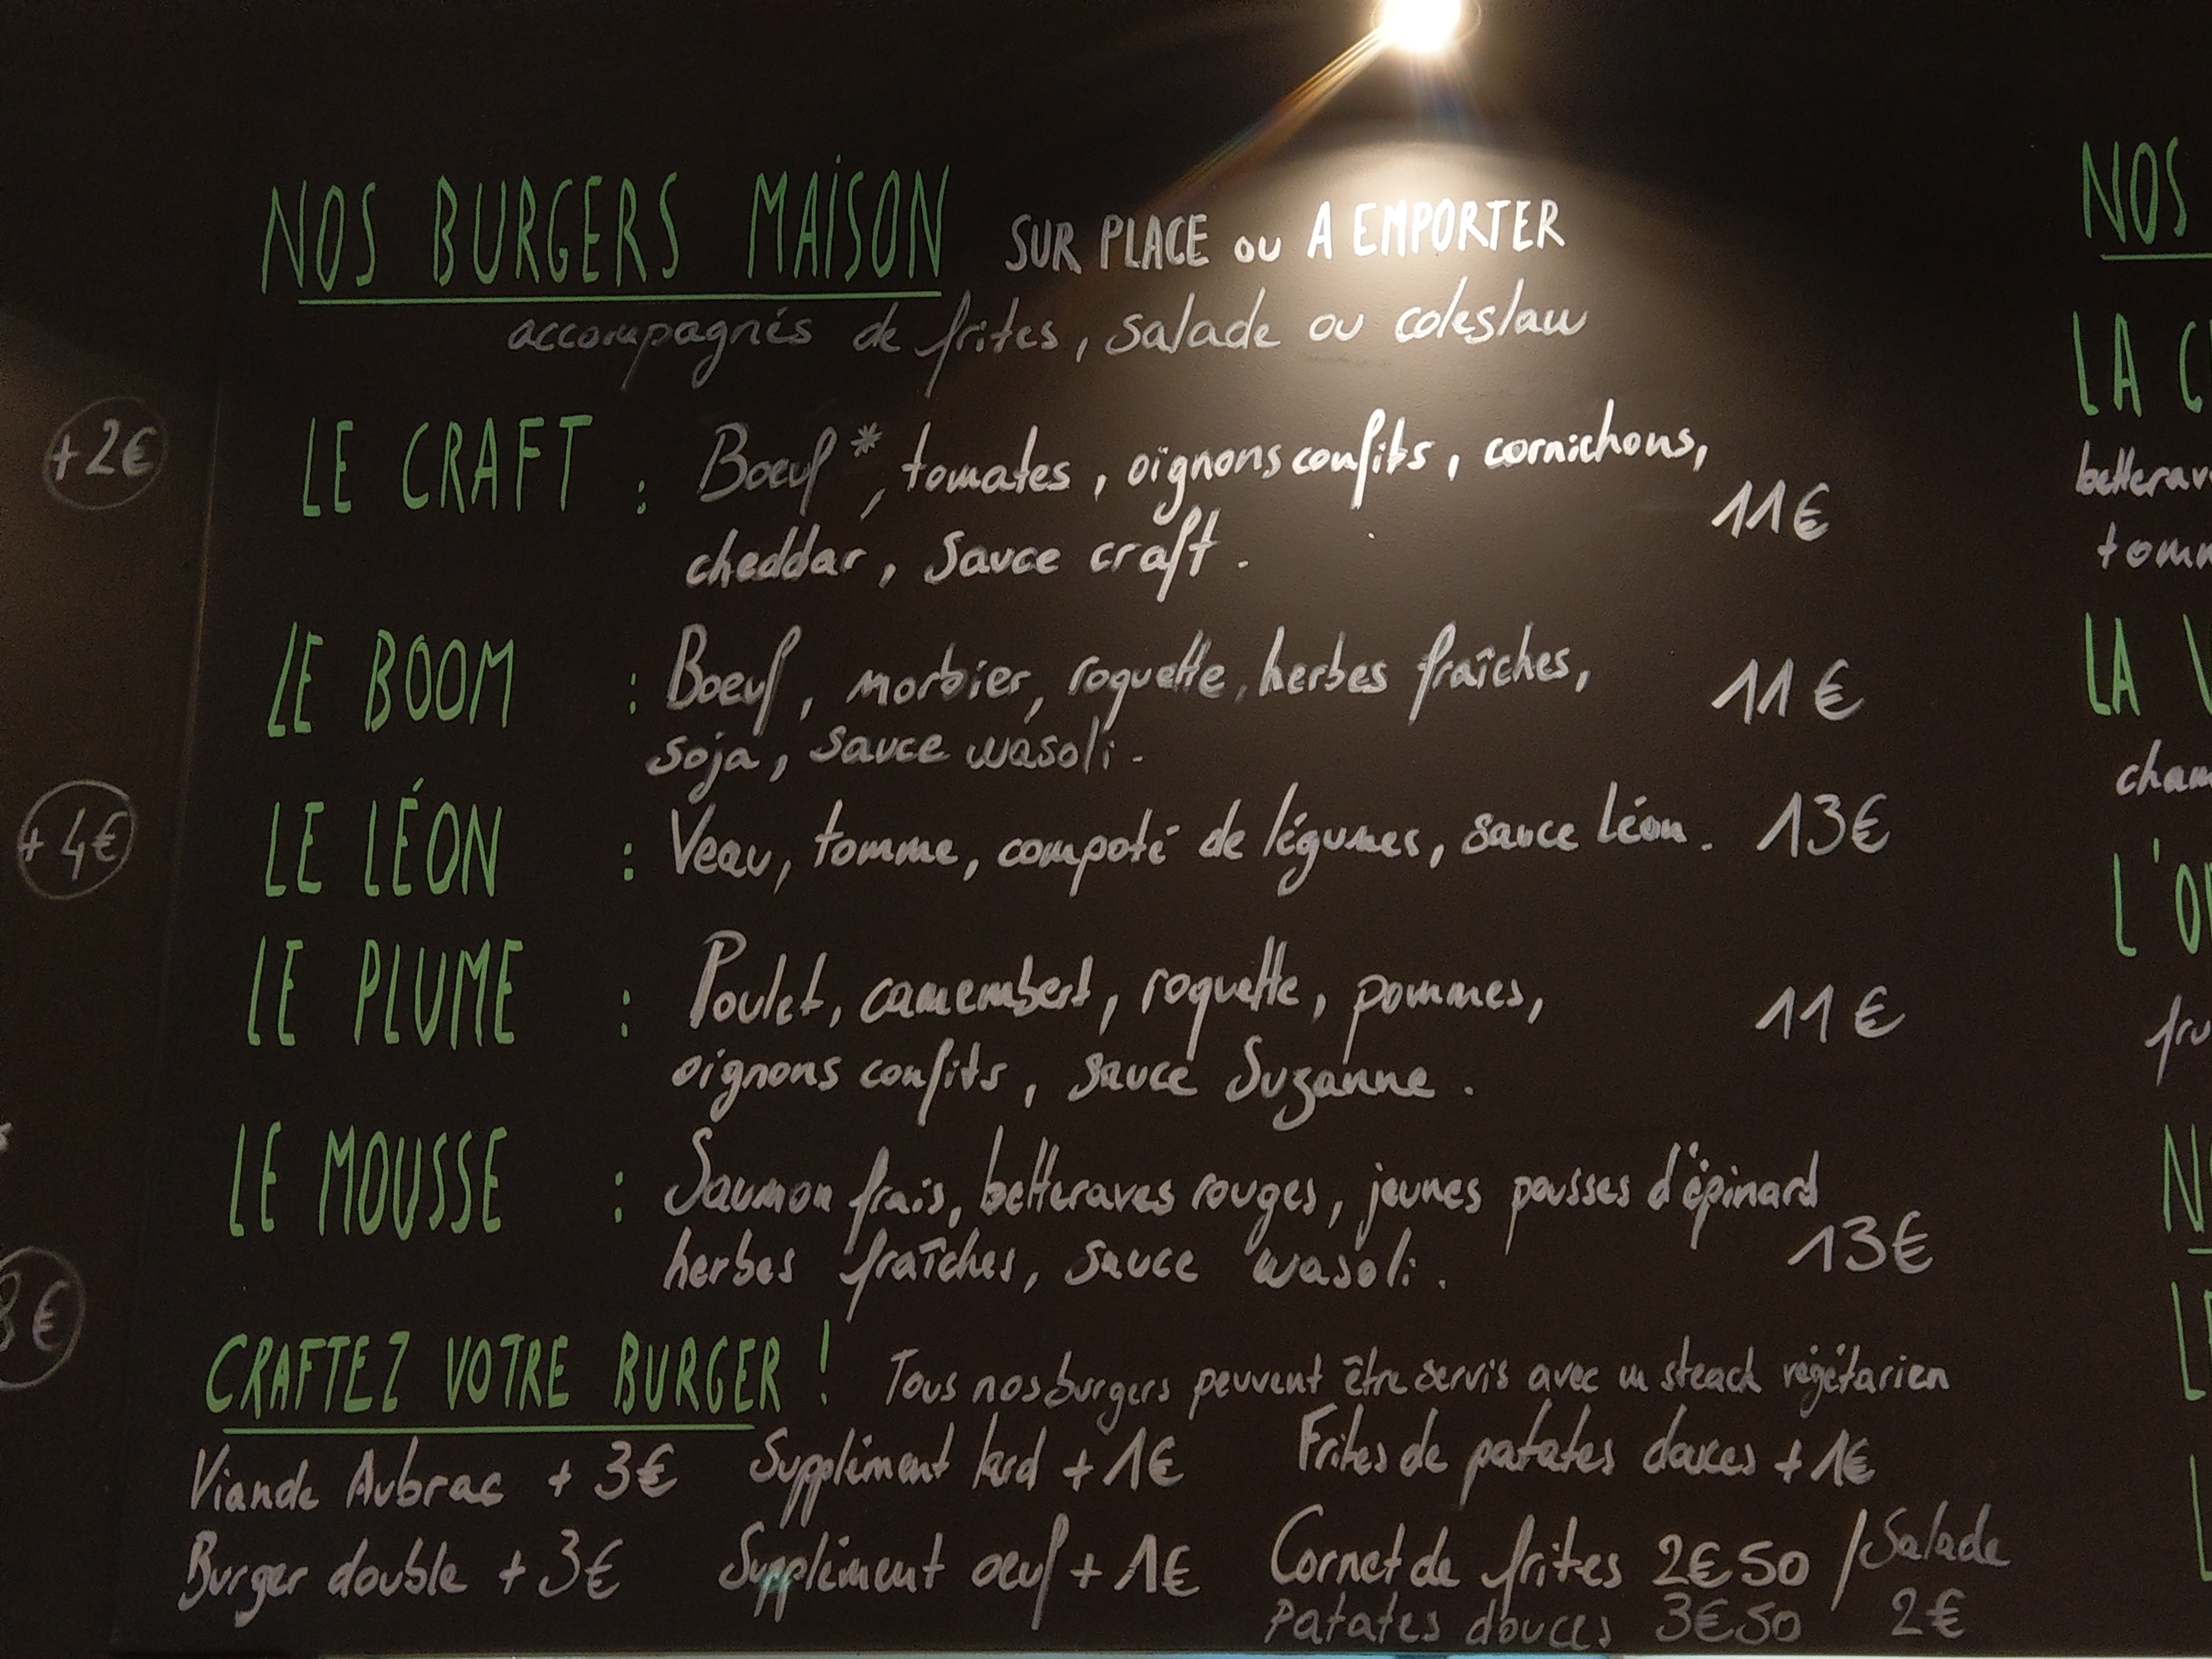 NOS BURGERS MAISON SUR PLACE ou A EMPORTER
accompagnés de frites, salade ou coleslaw
LE CRAFT : Boeuf*, tomates, oignons confits, cornichons,
cheddar, Sauce craft. 11€
LE BOOM : Boeuf, morbier, roquette, herbes fraîches,
soja, sauce wasoli. 11€
LE LÉON : Veau, tomme, compoté de légumes, sauce Léon. 13€
LE PLUME : Poulet, camembert, roquette, pommes,
oignons confits, sauce Suzanne. 11€
LE MOUSSE : Saumon frais, betteraves rouges, jeunes pousses d'épinard
herbes fraîches, sauce wasoli. 13€
CRAFTEZ VOTRE BURGER ! Tous nos burgers peuvent être servis avec un steack végétarien
Viande Aubrac + 3€ Supplément lard + 1€ Frites de patates douces + 1€
Burger double + 3€ Supplément oeuf + 1€ Cornet de frites 2€50 / Salade
Patates douces 3€50 2€
+2€
+4€
€
NOS
LA C
betterav
tomm
LA V
cham
L'O
fru
N
L